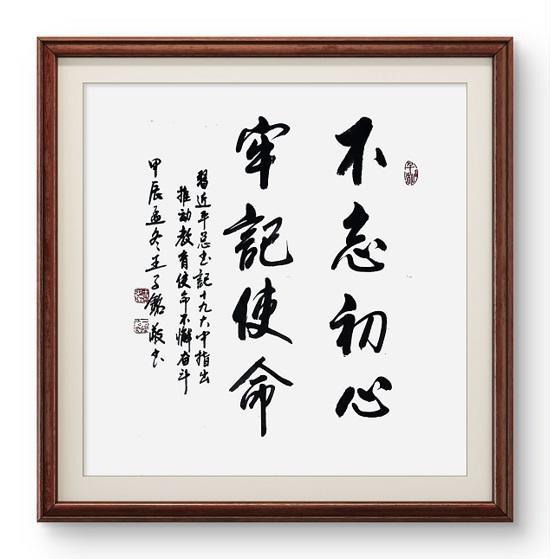 不忘初心
牢記使命
習近平总书記十九大中指出
推动教育使命不懈奋斗
甲辰孟冬王子銘敬书